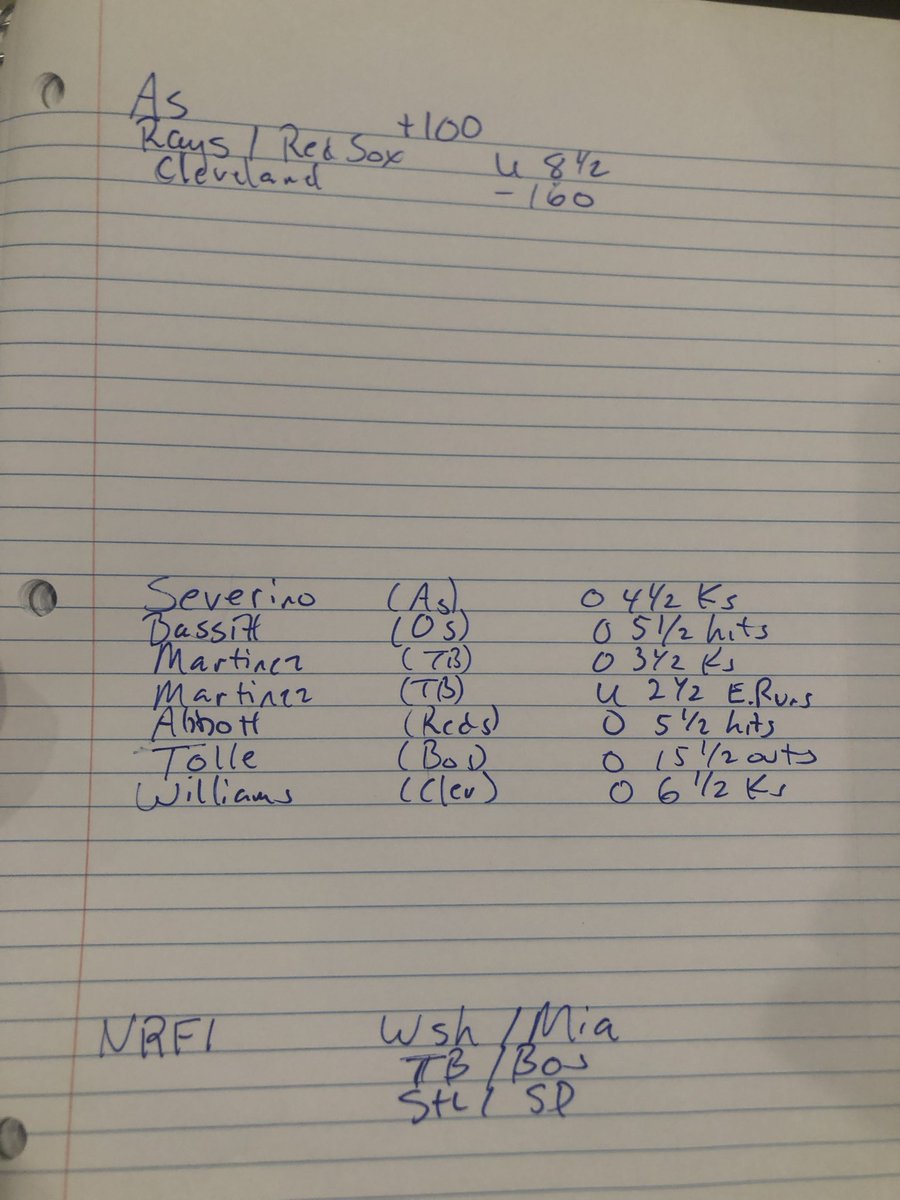 As +100
Rays / Red Sox u 8 1/2
Cleveland - 160
Severino (As) O 4 1/2 Ks
Bassitt (Os) O 5 1/2 hits
Martinez (TB) O 3 1/2 Ks
Martinez (TB) u 2 1/2 E.Runs
Abbott (Reds) O 5 1/2 hits
Tolle (Bos) O 15 1/2 outs
Williams (Clev) O 6 1/2 Ks
NRFI Wsh / Mia
TB / Bos
Stl / SD